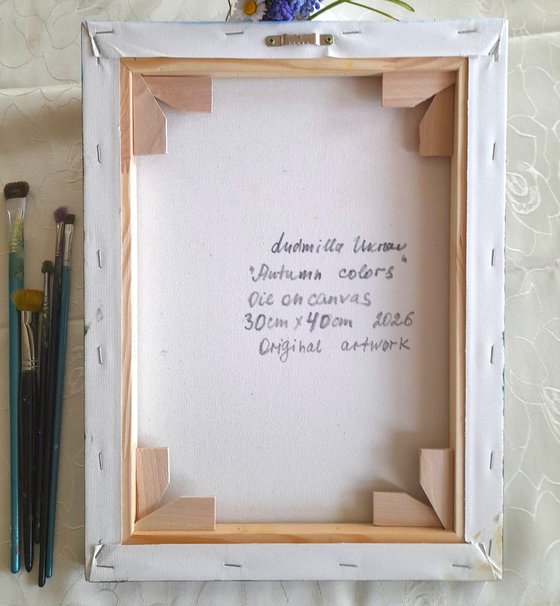 Ludmilla
"Autumn colors"
Oil on canvas
30cm x 40cm 2026
Original artwork